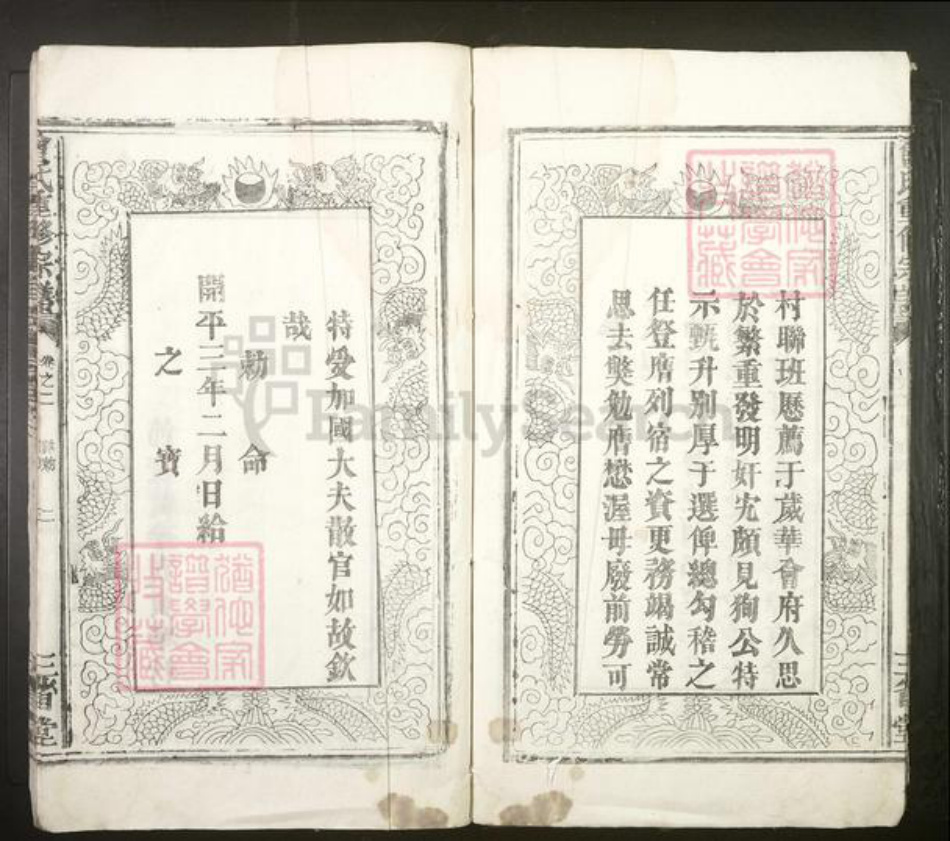 村聯班歷薦于歲華會府久思
於繁重發明奸宄頗見狥公特
示甄升别厚于選俾總勾稽之
任登膺列宿之資更務竭誠常
思去獘勉膺懋渥毋廢前勞可
特受加國大夫散官如故欽
哉
勅命
開平三年二月日給
之寳
氏重修宗譜
卷之二
二
三省堂
三省堂
譜學會
收藏
譜學會
收藏
FamilySearch